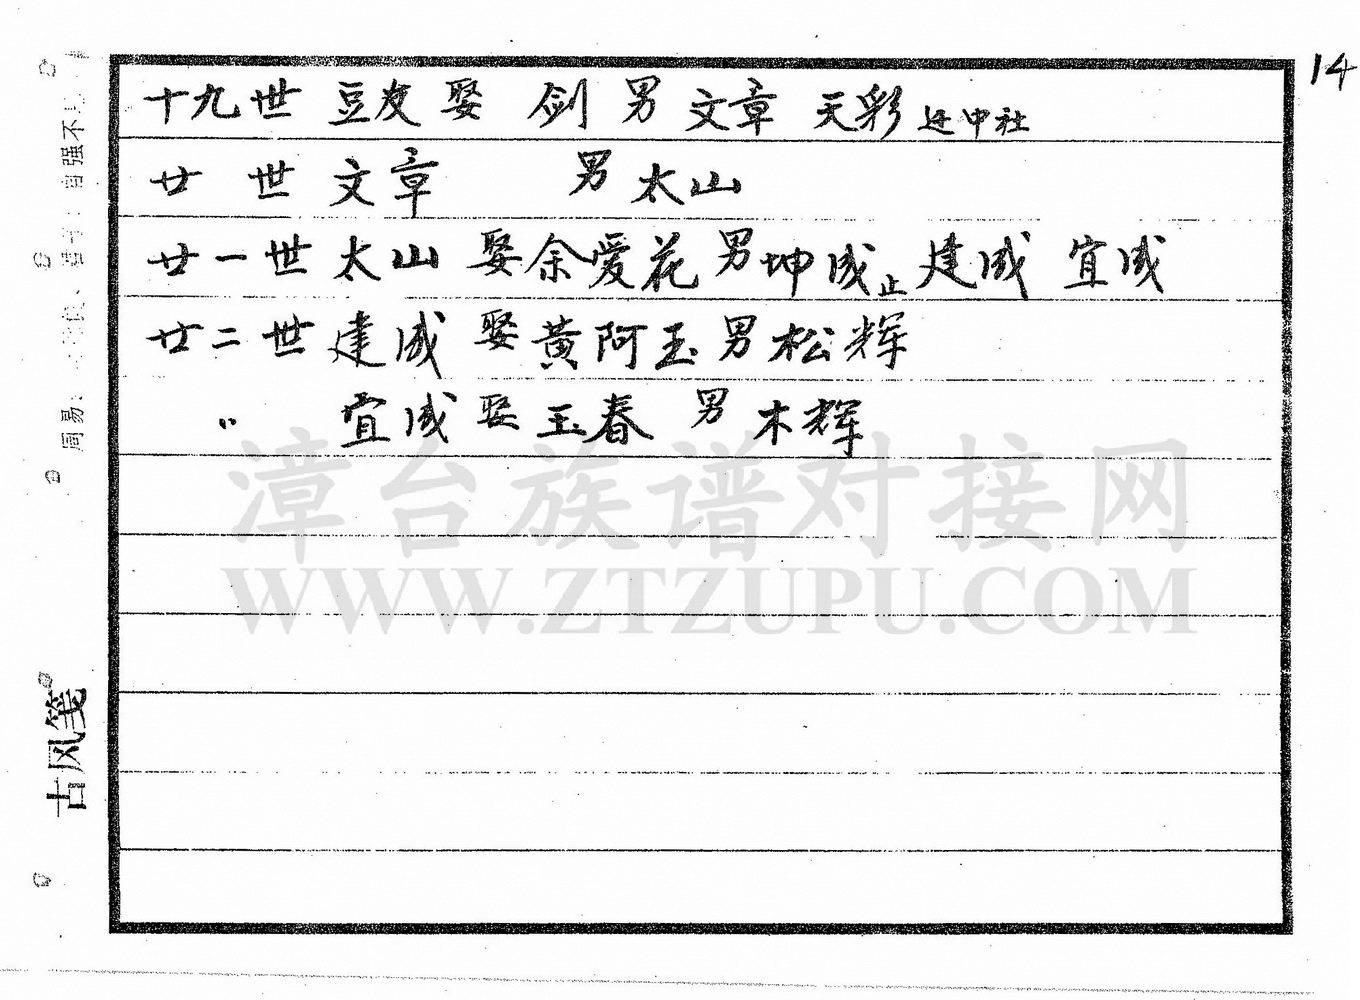 14
十九世 豆友 娶 剑 男 文章 天彩 迁中社
廿 世 文章 男 太山
廿一世 太山 娶余爱花 男坤成止 建成 宜成
廿二世 建成 娶黄阿玉 男松辉
〃 宜成 娶 玉春 男 木辉
漳台族谱对接网
WWW.ZTZUPU.COM
周易: 自强不
古风笺